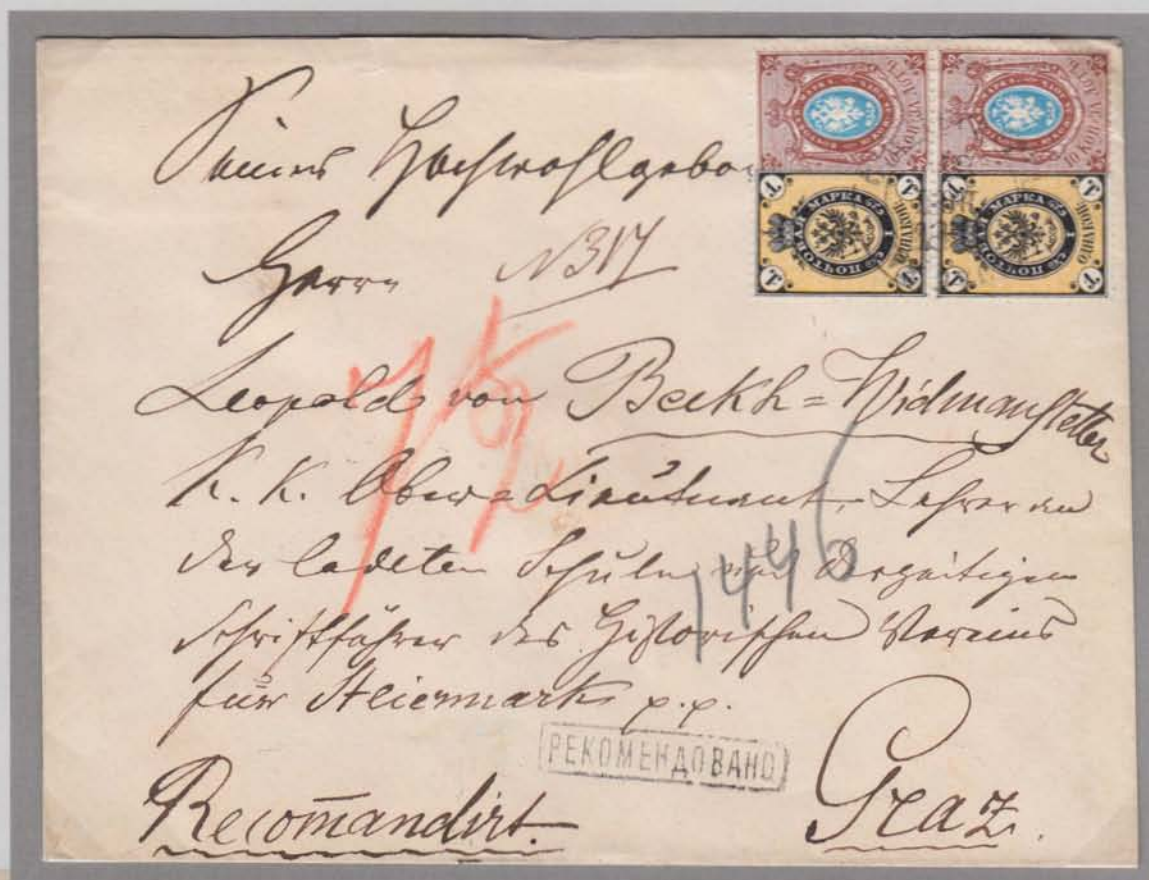 Seiner Hochwohlgebor
Herrn N317
Leopold von Beckh=Widmanstetter
K. K. Ober-Lieutnant, Lehrer an
der Cadeten Schule und derzeitigen
Schriftführer des Historischen Vereins
für Steiermark p.p.
РЕКОМЕНДОВАНО
Recom̄andirt. Graz.
1446